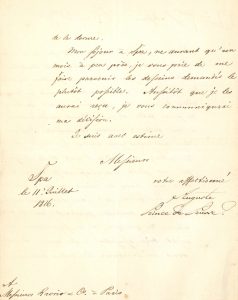 de la donner.
Mon séjour à Spa, ne durant qu'un
mois à peu près, je vous prie de me
faire parvenir les desseins demandés le
plutôt possible. Aussitôt que je les
aurai reçu, je vous communiquerai
ma décision.
Je suis avec estime
Messieurs
Spa
le 11 Juillet
1816.
votre affectionné
Auguste
Prince de Prusse
A
Messieurs à Paris